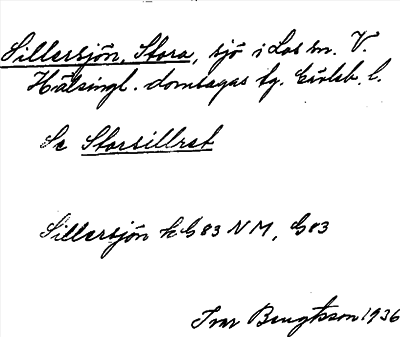 Sillersjön, Stora, sjö i Los sn. V.
Hälsingl. domsagas tg. Gävleb. l.
Se Storsillret
Sillersjön k G83 NM, G83
Ivar Bengtsson 1936